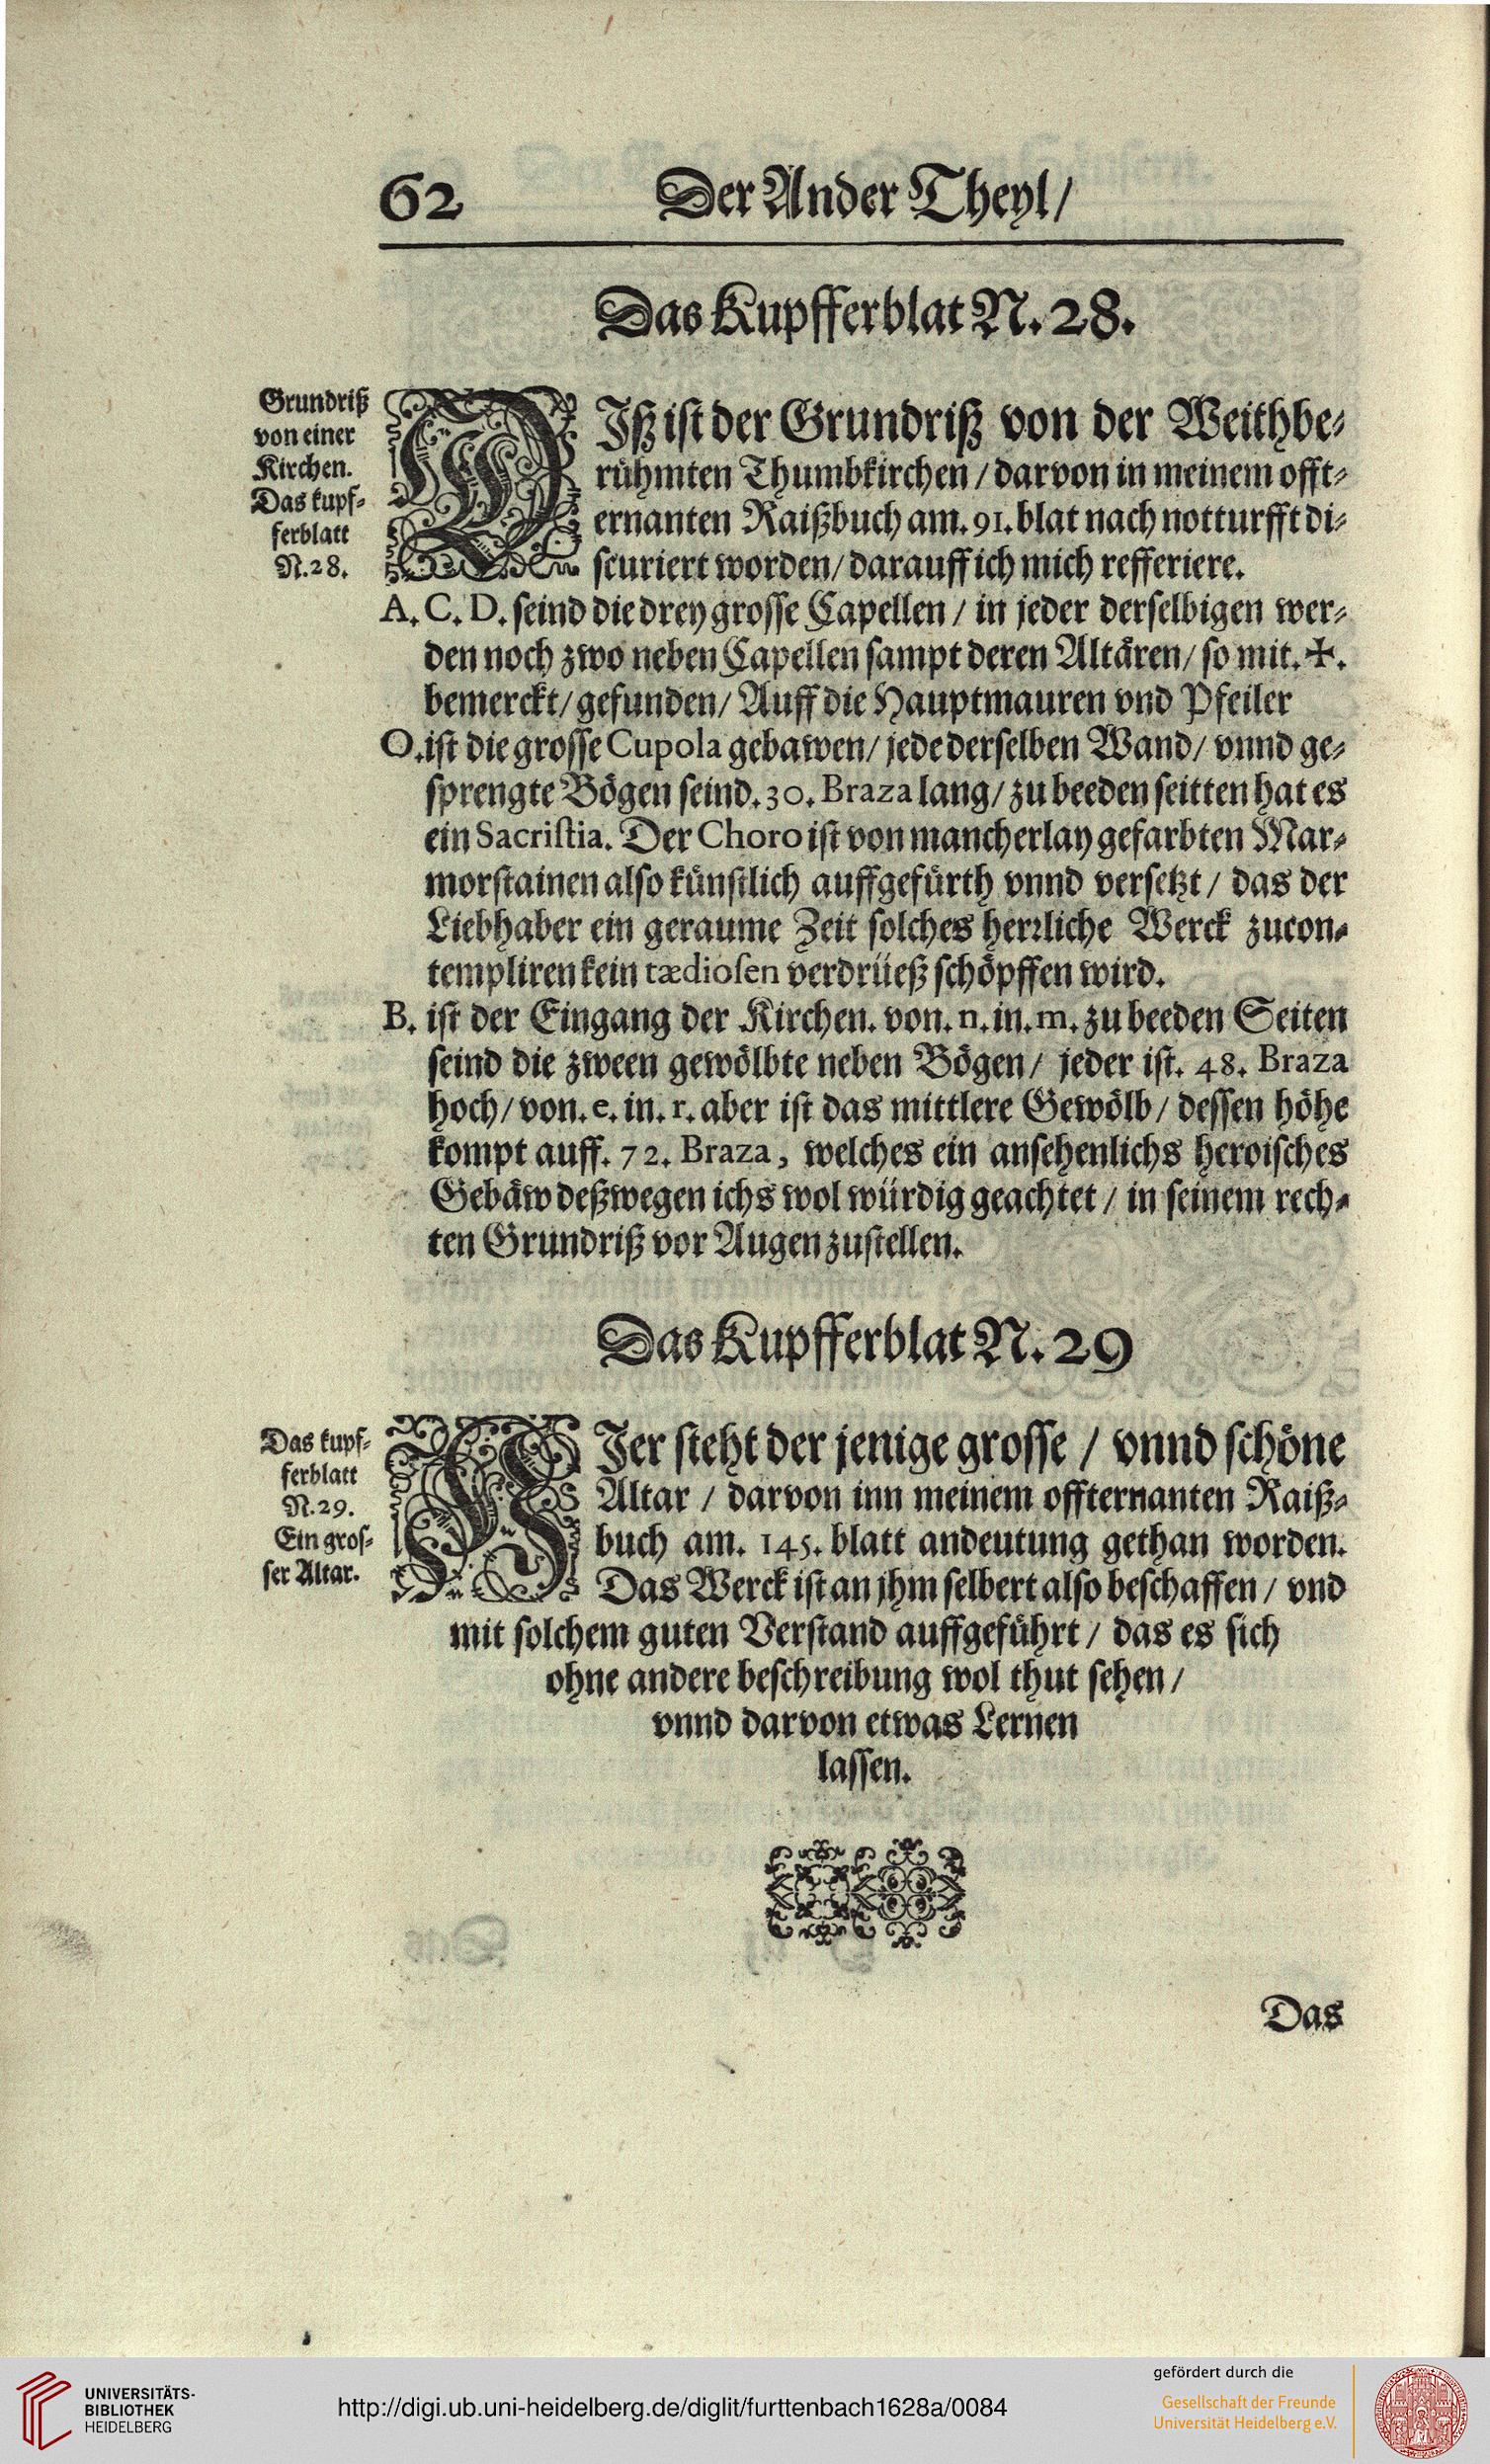 62 Der Ander Theyl/
Das Kupfferblat N. 28.
Grundriß
von einer
Kirchen.
Das kupf-
ferblatt
N. 28.
DIß ist der Grundriß von der Weithbe-
rühmten Thumbkirchen / darvon in meinem offt-
ernanten Raißbuch am. 91. blat nach notturfft di-
scuriert worden/ darauff ich mich refferiere.
A. C. D. seind die drey grosse Capellen / in jeder derselbigen wer-
den noch zwo neben Capellen sampt deren Altären/ so mit. ✠.
bemerckt/ gefunden/ Auff die Hauptmauren vnd Pfeiler
O. ist die grosse Cupola gebawen/ jede derselben Wand/ vnnd ge-
sprengte Bögen seind. 30. Braza lang/ zu beeden seitten hat es
ein Sacristia. Der Choro ist von mancherlay gefarbten Mar-
morstainen also künstlich auffgefürth vnnd versetzt / das der
Liebhaber ein geraume Zeit solches herrliche Werck zucon-
templiren kein tædiosen verdrüeß schöpffen wird.
B. ist der Eingang der Kirchen. von. n. in. m. zu beeden Seiten
seind die zween gewölbte neben Bögen/ jeder ist. 48. Braza
hoch/ von. e. in. r. aber ist das mittlere Gewölb/ dessen höhe
kompt auff. 72. Braza, welches ein ansehenlichs heroisches
Gebäw deßwegen ichs wol würdig geachtet / in seinem rech-
ten Grundriß vor Augen zustellen.
Das Kupfferblat N. 29
Das kupf-
ferblatt
N. 29.
Ein gros-
ser Altar.
HIer steht der jenige grosse / vnnd schöne
Altar / darvon inn meinem offternanten Raiß-
buch am. 145. blatt andeutung gethan worden.
Das Werck ist an jhm selbert also beschaffen / vnd
mit solchem guten Verstand auffgeführt / das es sich
ohne andere beschreibung wol thut sehen /
vnnd darvon etwas Lernen
lassen.
Das
UNIVERSITÄTS-
BIBLIOTHEK
HEIDELBERG
http://digi.ub.uni-heidelberg.de/diglit/furttenbach1628a/0084
gefördert durch die
Gesellschaft der Freunde
Universität Heidelberg e.V.